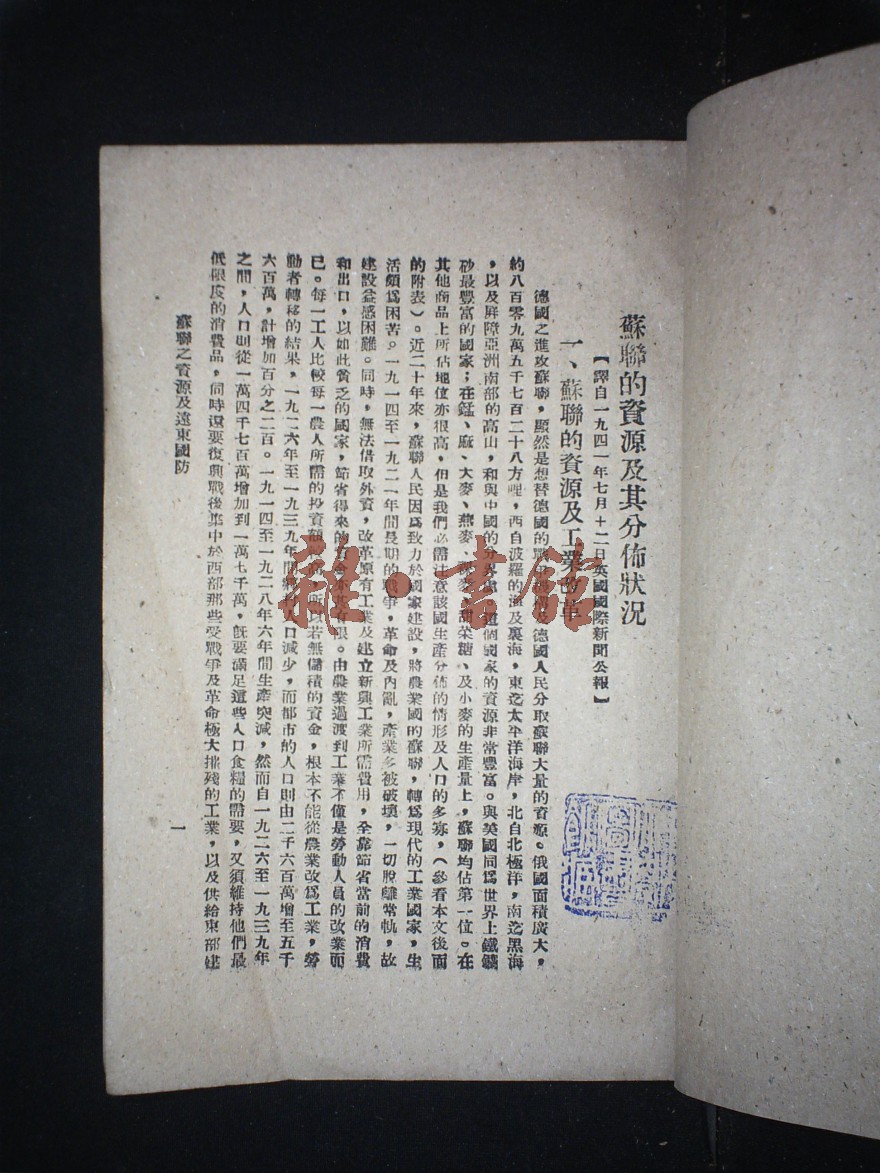 蘇聯的資源及其分佈狀况
【譯自一九四一年七月十二日英國國際新聞公報】
一、蘇聯的資源及工業改革
德國之進攻蘇聯，顯然是想替德國的戰爭機構及德國人民分取蘇聯大量的資源。俄國面積廣大，
約八百零九萬五千七百二十八方哩，西自波羅的海及裏海，東迄太平洋海岸，北自北極洋，南迄黑海
，以及屏障亞洲南部的高山，和與中國的分界處，這個國家的資源非常豐富。與美國同爲世界上鐵鑛
砂最豐富的國家；在錳、麻、大麥、燕麥、麥、甜菜糖、及小麥的生產量上，蘇聯均佔第一位。在
其他商品上所佔地位亦很高，但是我們必需注意該國生產分佈的情形及人口的多寡，（參看本文後面
的附表）。近二十年來，蘇聯人民因爲致力於國家建設，將農業國的蘇聯，轉爲現代的工業國家，生
活頗爲困苦。一九一四至一九二一年間長期的戰爭，革命及內亂，產業多被破壞，一切脫離常軌，故
建設益感困難。同時，無法借取外資，改革原有工業及建立新興工業所需費用，全靠節省當前的消費
和出口，以如此貧乏的國家，節省得來的資金亦甚有限。由農業過渡到工業不僅是勞動人員的改業而
已。每一工人比較每一農人所需的投資額較高，所以若無儲積的資金，根本不能從農業改爲工業，勞
動者轉移的結果，一九二六年至一九三九年間鄉村人口減少，而都市的人口則由二千六百萬增至五千
六百萬，計增加百分之二百。一九一四至一九二八年六年間生產突減，然而自一九二六至一九三九年
之間，人口則從一萬四千七百萬增加到一萬七千萬，旣要滿足這些人口食糧的需要，又須維持他們最
低限度的消費品，同時還要復興戰後集中於西部那些受戰爭及革命極大摧殘的工業，以及供給東部建
蘇聯之資源及遠東國防
一
雜·書館